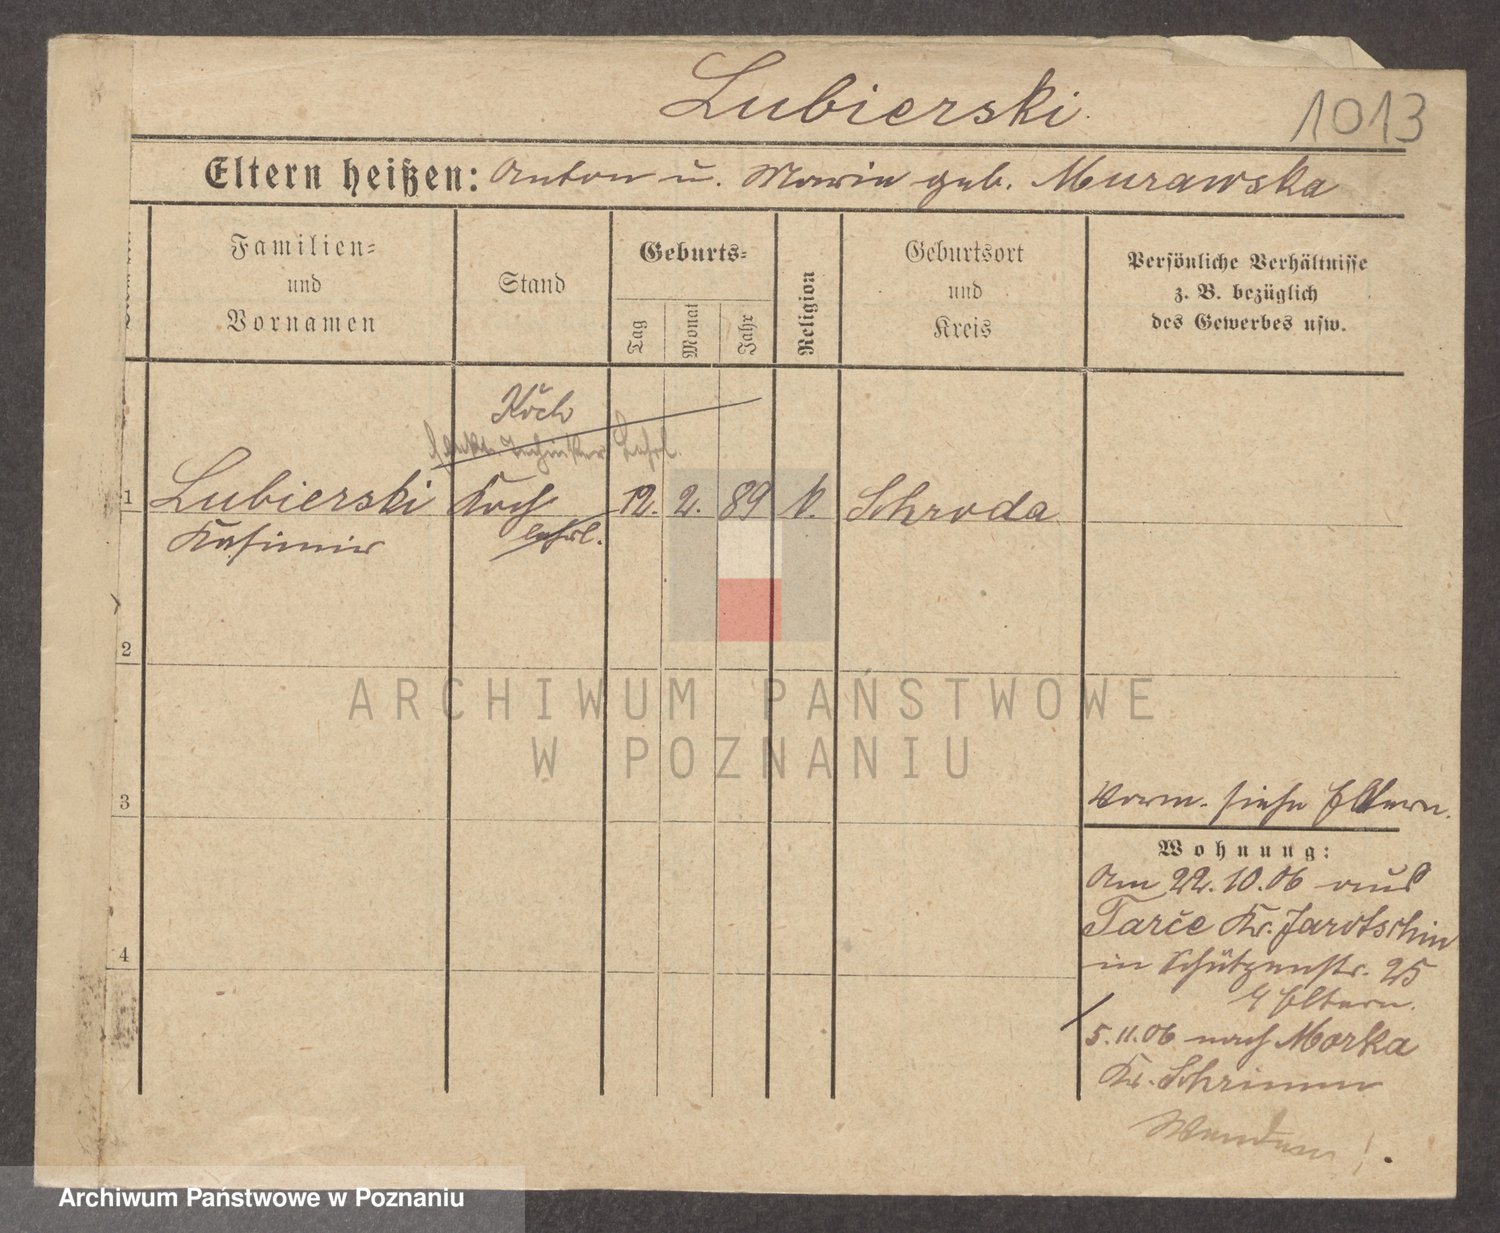 Lubierski
1013
Eltern heißen: Anton u. Maria geb. Murawska
Familien=
und
Vornamen
Stand
Geburts=
Tag
Monat
Jahr
Religion
Geburtsort
und
Kreis
Persönliche Verhältnisse
z. B. bezüglich
des Gewerbes usw.
Koch
Techniker Lehrl.
1 Lubierski Koch 12. 2. 89 k. Schroda
Kasimir lehrl.
2
3
4
Vorm. siehe Eltern.
Wohnung:
Am 22.10.06 aus
Tarce Kr. Jarotschin
in Schützenstr. 25
Eltern.
5.11.06 nach Morka
Kr. Schrimm
Wenden!
ARCHIWUM PAŃSTWOWE
W POZNANIU
Archiwum Państwowe w Poznaniu